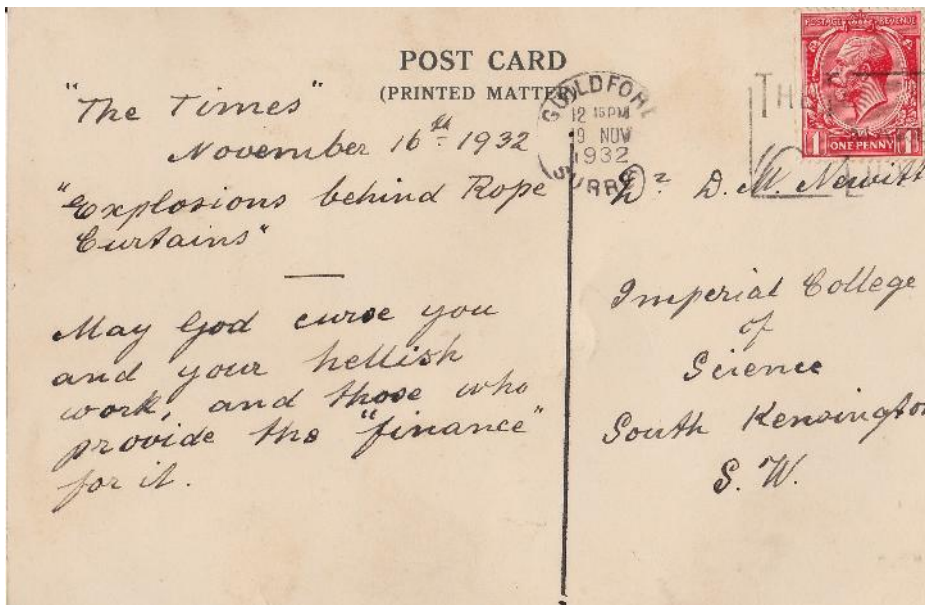 POST CARD
(PRINTED MATTER)
"The Times"
November 16th 1932
"Explosions behind Rope
Curtains"
May God curse you
and your hellish
work, and those who
provide the "finance"
for it.
GUILDFORD
12 15 PM
19 NOV
1932
SURREY
POSTAGE REVENUE
1 ONE PENNY 1
Dr D. M. Newitt
Imperial College
of
Science
South Kensington
S. W.